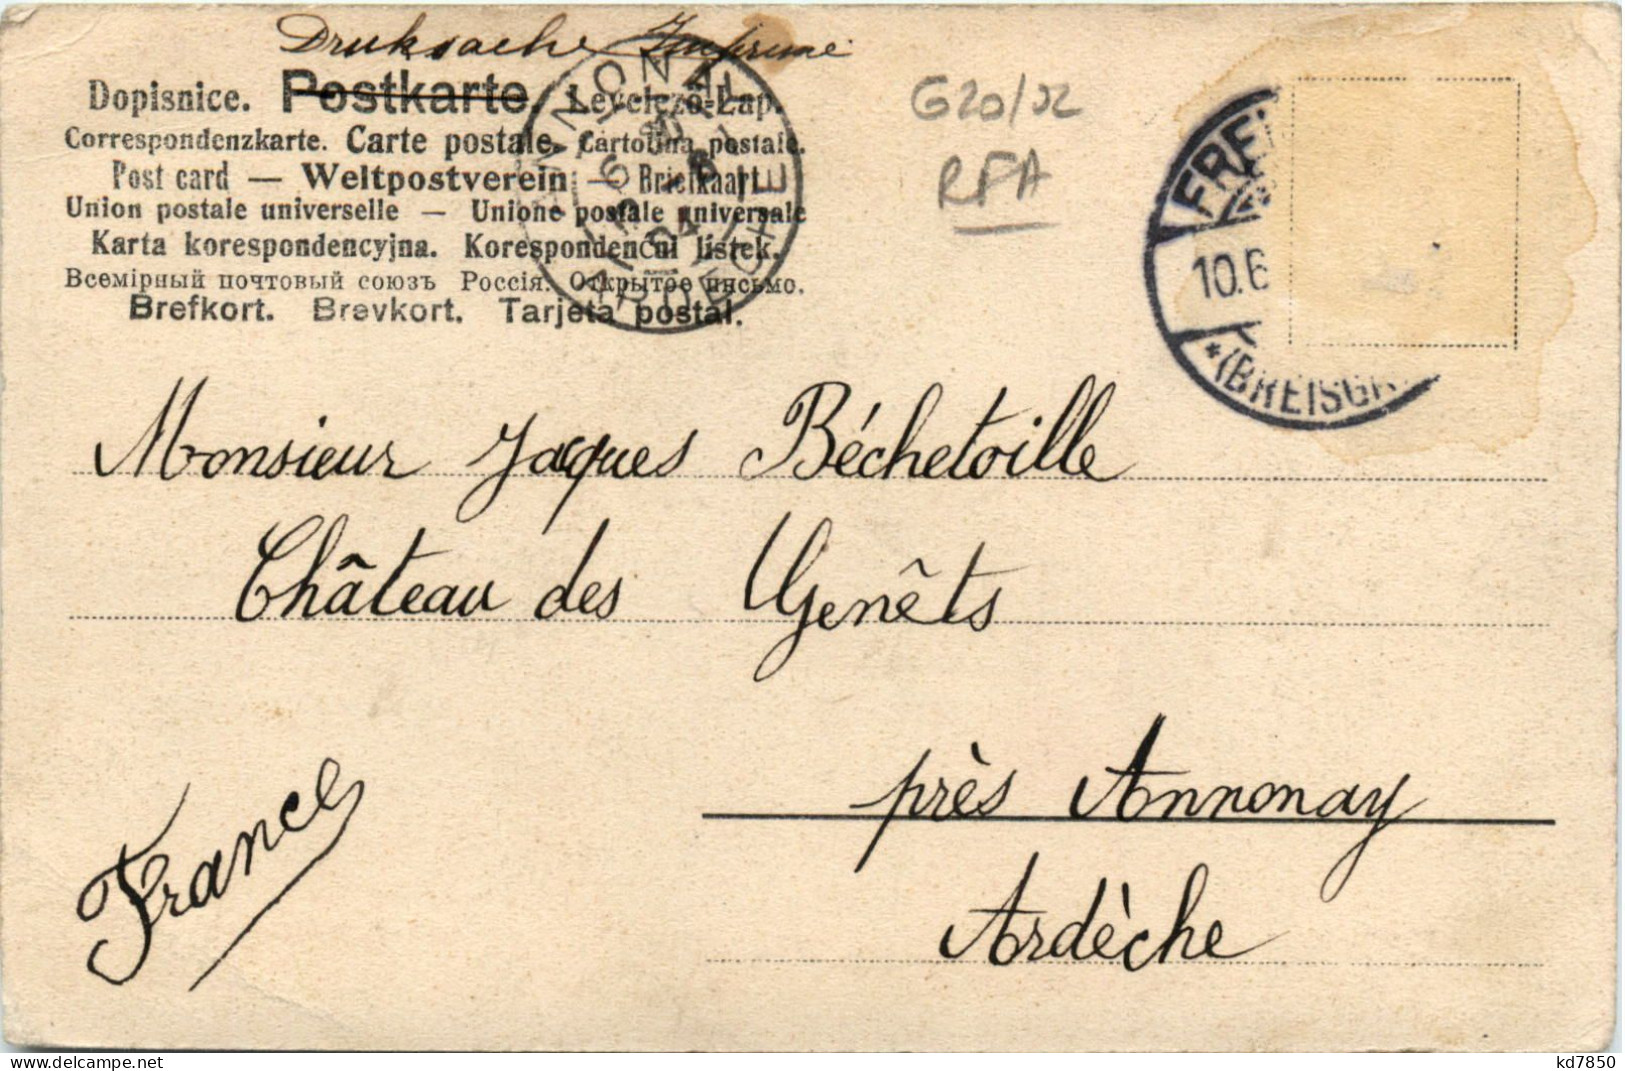 Druksache Imprimé
Dopisnice. Postkarte. Levelező-Lap.
Correspondenzkarte. Carte postale. Cartolina postale.
Post card — Weltpostverein — Briefkaart
Union postale universelle — Unione postale universale
Karta korespondencyjna. Korespondenční listek.
Всемірный почтовый союзъ Россія. Открытое письмо.
Brefkort. Brevkort. Tarjeta postal.
ANNONAY
ARDECHE
G20/02
RFA
10.6
*(BREISGA
Monsieur Jacques Béchetoille
Château des Genêts
près Annonay
Ardèche
France
kd7850